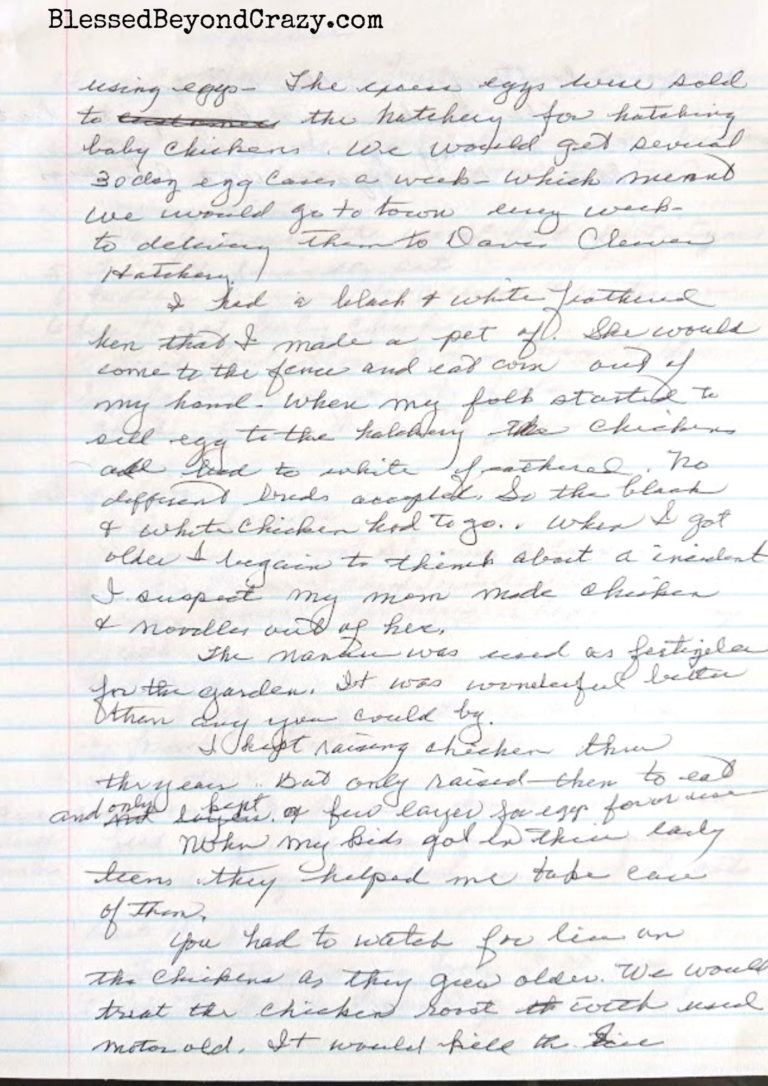 BlessedBeyondCrazy.com
using eggs - The excess eggs were sold
to the hatchery for hatching
baby chickens. We would get several
30 doz egg cases a week - which meant
we would go to town every week -
to delivery them to Davis Cleaver
Hatchery
I had a black & white feathered
hen that I made a pet of. She would
come to the fence and eat corn out of
my hand. When my folk started to
sell egg to the hatchery the chickens
all had to white feathered. No
different breds accepted. So the black
& white chicken had to go.. When I got
older I begain to think about a incedent
I suspect my mom made chicken
& noodles out of her.
The manure was used as fertizler
for the garden. It was wonderful better
then any you could by.
I kept raising chicken thru
the year. But only raised them to eat
and only kept a few layer for egg for our use
When my kids got in their early
teens they helped me take care
of them.
You had to watch for lice on
the chickens as they grew older. We would
treat the chicken roost with used
motor old. It would kill the lice